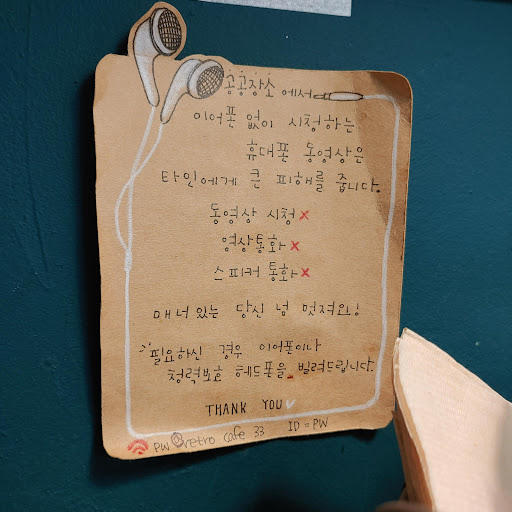 공공장소에서
이어폰 없이 시청하는
휴대폰 동영상은
타인에게 큰 피해를 줍니다.
동영상 시청 x
영상통화 x
스피커 통화 x
매너있는 당신 넘 멋져요!
필요하신 경우 이어폰이나
청력보호 헤드폰을 빌려드립니다.
THANK YOU
PW @retro cafe 33 ID = PW